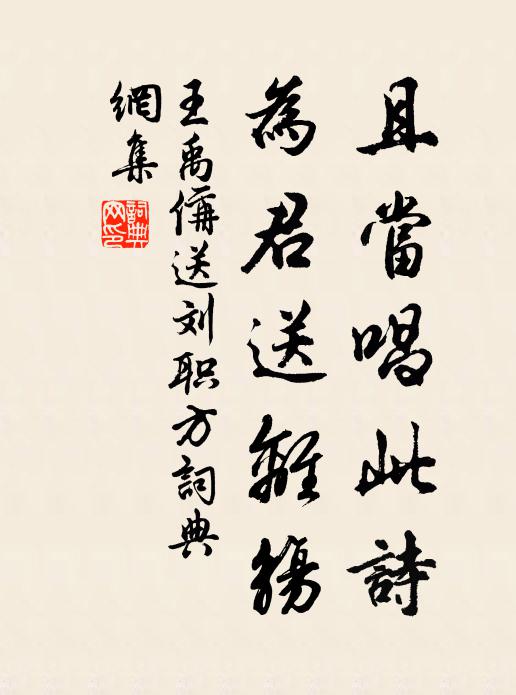 且當唱此詩
為君送離觴
王禹偁送刘职方詞典
網集
詞典
网印